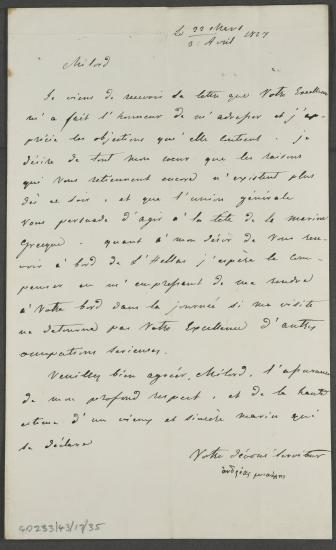 Le 22 Mars 1827
3 Avril
Milord
Je viens de recevoir la lettre que Votre Excellence
m'a fait l'honneur de m'adresser et j'ap-
précie les objections qu'elle contient. je
désire de tout mon coeur que les raisons
qui Vous retiennent encore n'existent plus
dès ce soir, et que l'union générale
Vous persuade d'agir à la tête de la marine
Grecque. quant à mon désir de Vous rece-
voir à bord de l'Hellas j'espère le com-
penser en m'empressant de me rendre
à Votre bord dans la journée si ma visite
ne detourne pas Votre Excellence d'autres
occupations serieuses.
Veuillez bien agréer, Milord, l'assurance
de mon profond respect, et de la haute
estime d'un vieux et sincère marin qui
se déclare
Votre dévoué Serviteur
ἀνδρέας μιαούλης
GD233/43/17/35